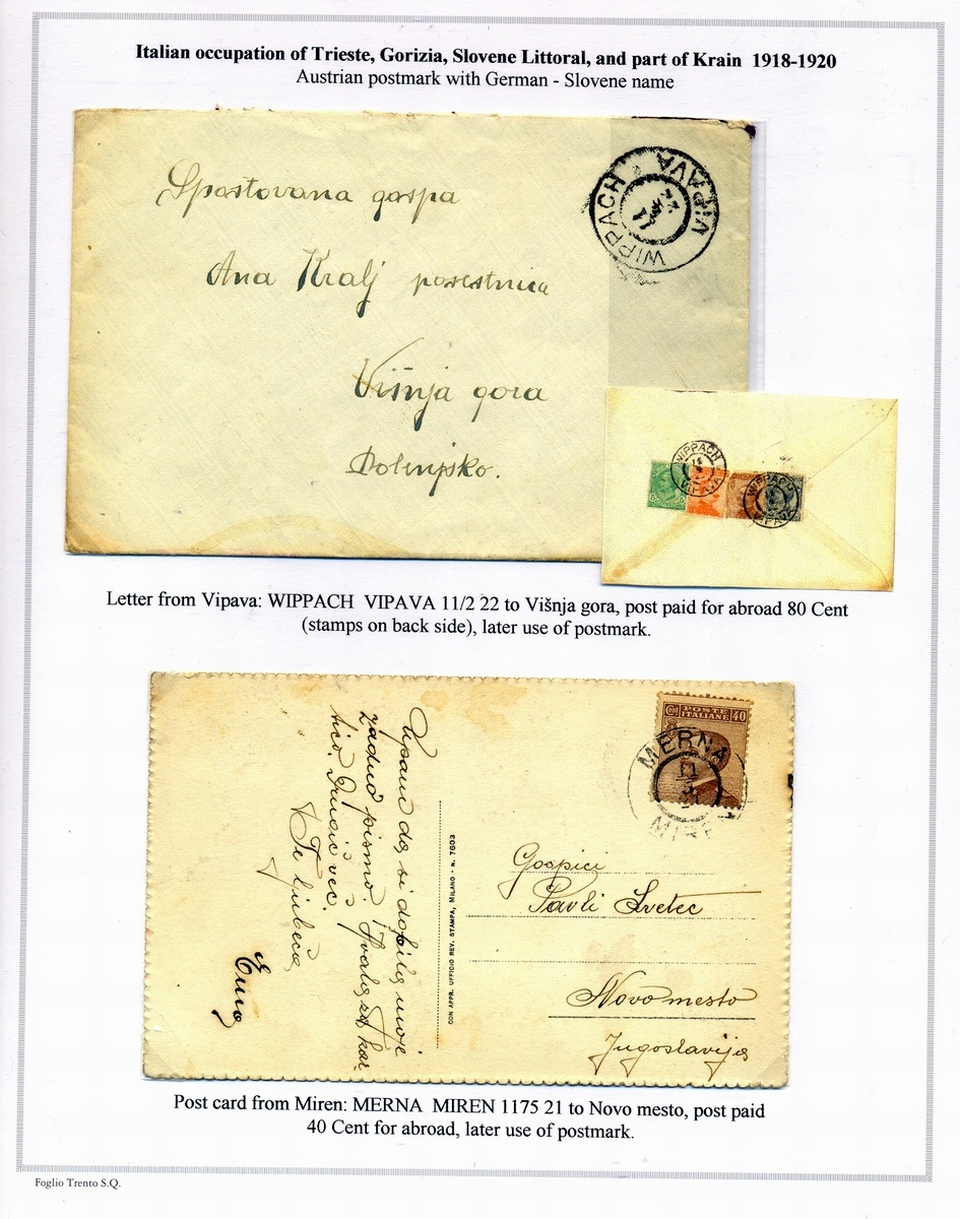 Italian occupation of Trieste, Gorizia, Slovene Littoral, and part of Krain 1918-1920
Austrian postmark with German - Slovene name
Spoštovana gospa
Ana Kralj posestnica
Višnja gora
Dolenjsko.
WIPPACH VIPAVA
11
22
WIPPACH
VIPAVA
WIPPACH
VIPAVA
Letter from Vipava: WIPPACH VIPAVA 11/2 22 to Višnja gora, post paid for abroad 80 Cent
(stamps on back side), later use of postmark.
Upam da si dobila moje
zadnő pismo. Hvala za kar-
tico. Drugič več.
Te ljubeča
CON APPR. UFFICIO REV. STAMPA, MILANO - N. 7603
POSTE
ITALIANE
40
MERNA
11
MIREN
Gospici
Pavli Svetec
Novo mesto
Jugoslavija
Post card from Miren: MERNA MIREN 1175 21 to Novo mesto, post paid
40 Cent for abroad, later use of postmark.
Foglio Trento S.Q.